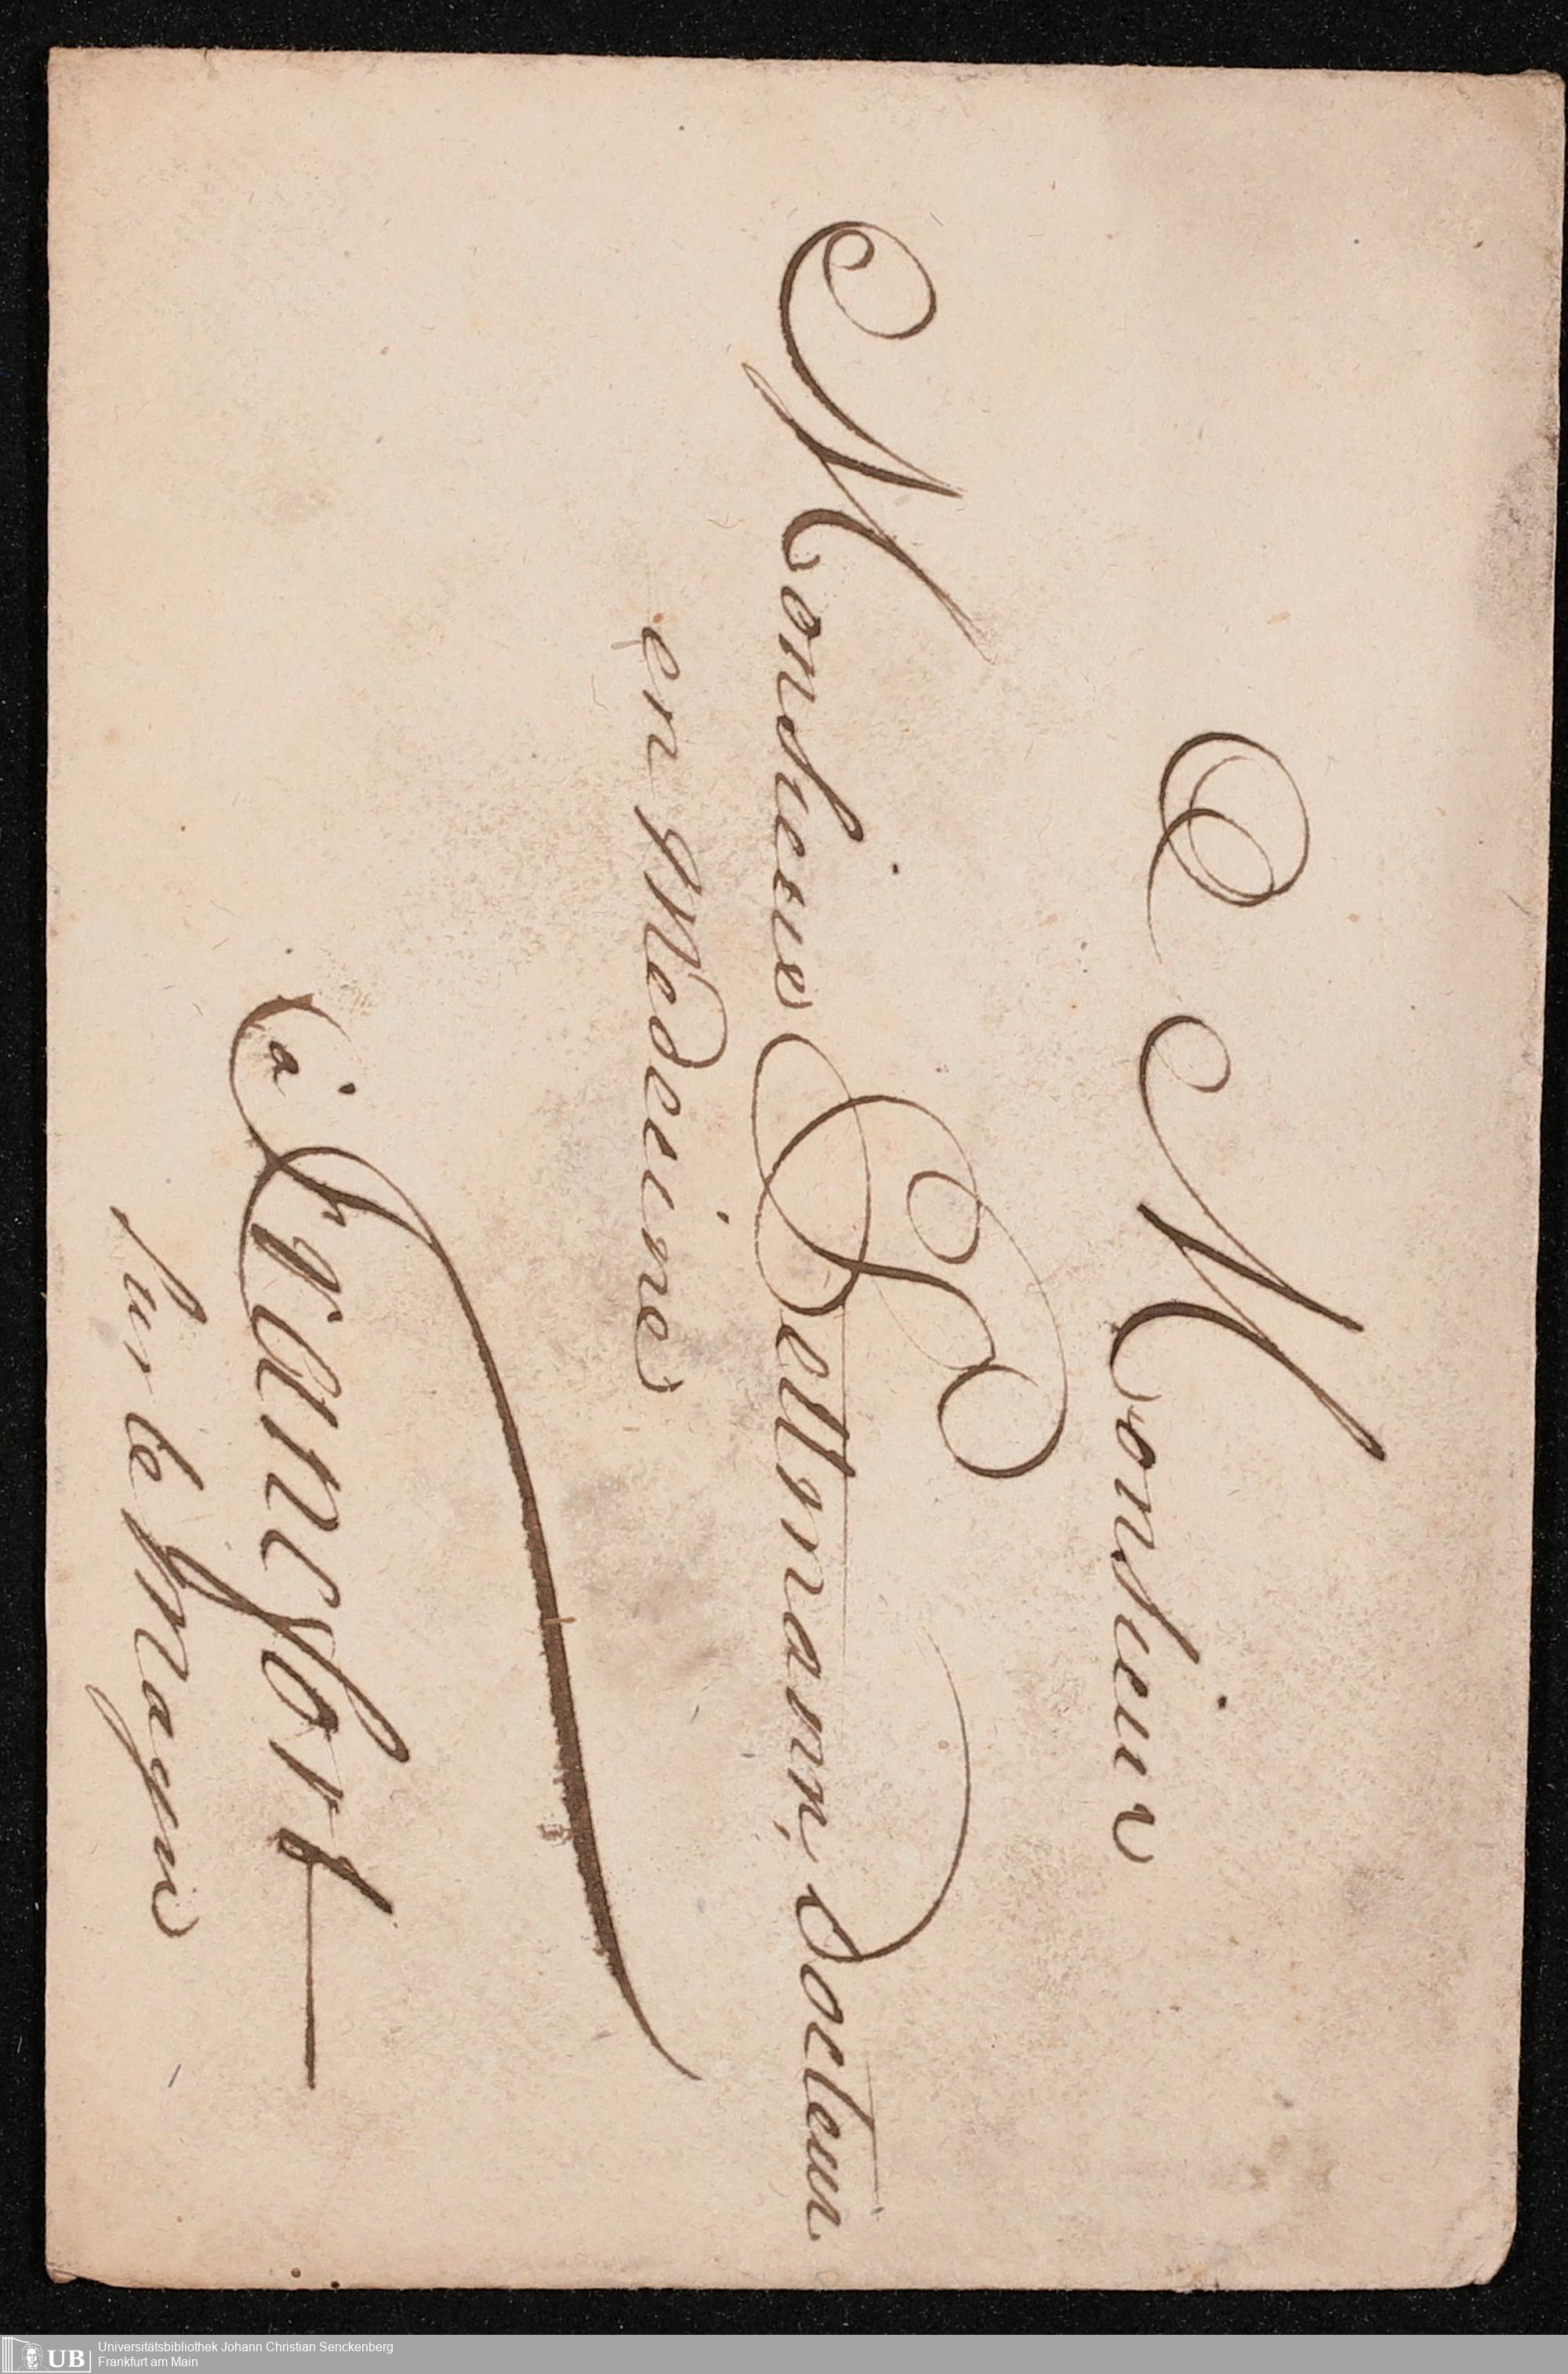 A Monsieur
Monsieur Bettmann, docteur
en Medecine
à Francfort
sur le Mayn
UB
Universitätsbibliothek Johann Christian Senckenberg
Frankfurt am Main